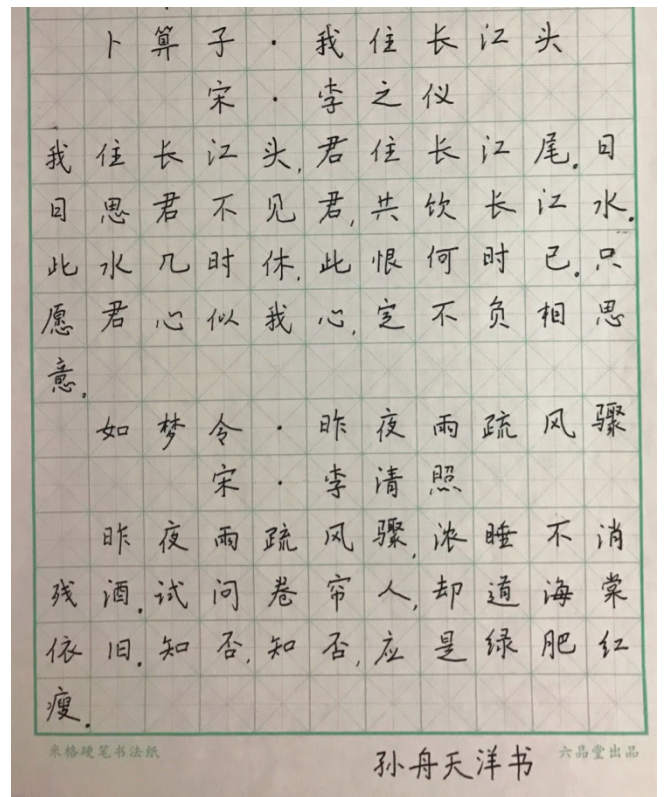 卜算子·我住长江头
宋·李之仪
我住长江头,君住长江尾.日
日思君不见君,共饮长江水.
此水几时休,此恨何时已.只
愿君心似我心,定不负相思
意.
如梦令·昨夜雨疏风骤
宋·李清照
昨夜雨疏风骤,浓睡不消
残酒.试问卷帘人,却道海棠
依旧.知否,知否,应是绿肥红
瘦.
米格硬笔书法纸 六品堂出品
孙舟天洋书